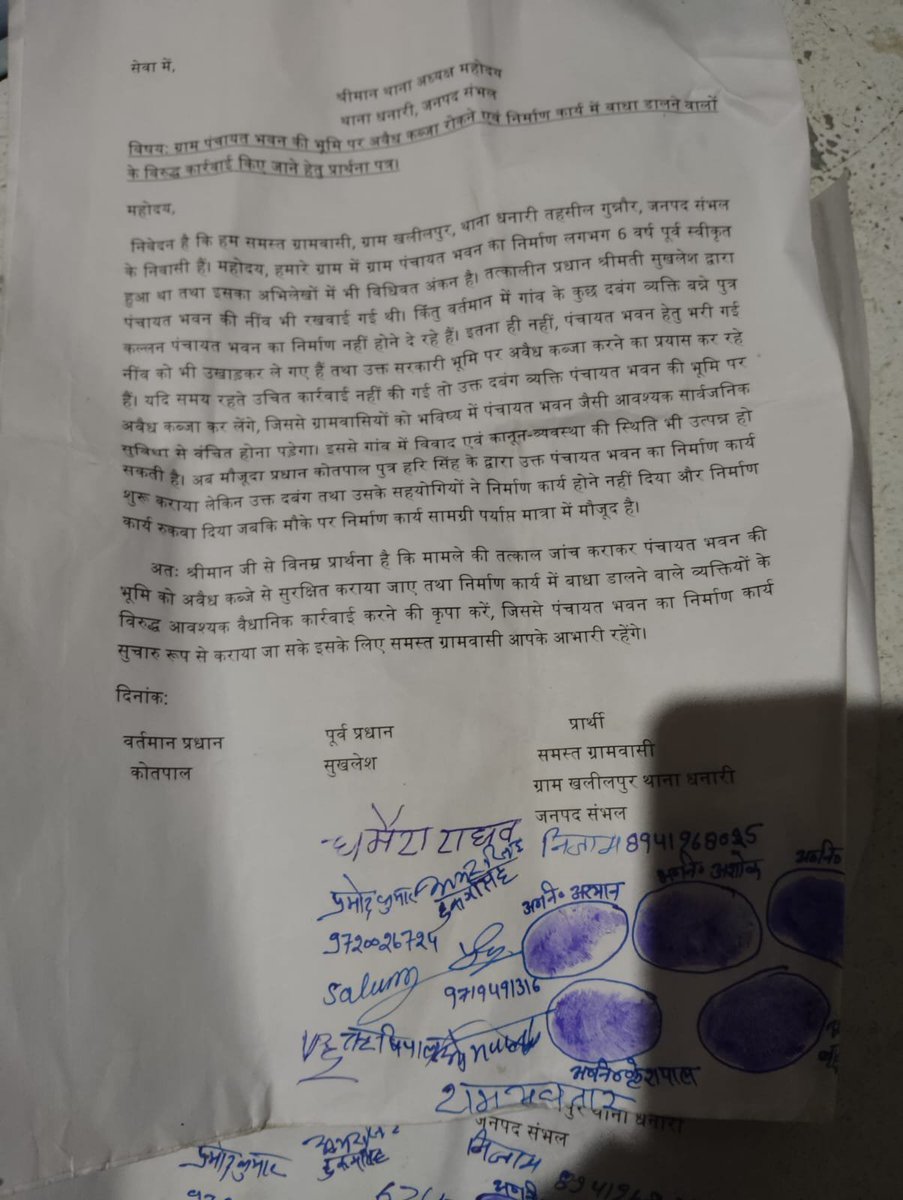 सेवा में,
श्रीमान थाना अध्यक्ष महोदय
थाना धनारी, जनपद संभल
विषय: ग्राम पंचायत भवन की भूमि पर अवैध कब्जा रोकने एवं निर्माण कार्य में बाधा डालने वालों
के विरुद्ध कार्रवाई किए जाने हेतु प्रार्थना पत्र।
महोदय,
निवेदन है कि हम समस्त ग्रामवासी, ग्राम खलीलपुर, थाना धनारी तहसील गुन्नौर, जनपद संभल
के निवासी हैं। महोदय, हमारे ग्राम में ग्राम पंचायत भवन का निर्माण लगभग 6 वर्ष पूर्व स्वीकृत
हुआ था तथा इसका अभिलेखों में भी विधिवत अंकन है। तत्कालीन प्रधान श्रीमती सुखलेश द्वारा
पंचायत भवन की नींव भी रखवाई गई थी। किंतु वर्तमान में गांव के कुछ दबंग व्यक्ति बन्ने पुत्र
कल्लन पंचायत भवन का निर्माण नहीं होने दे रहे हैं। इतना ही नहीं, पंचायत भवन हेतु भरी गई
नींव को भी उखाड़कर ले गए हैं तथा उक्त सरकारी भूमि पर अवैध कब्जा करने का प्रयास कर रहे
हैं। यदि समय रहते उचित कार्रवाई नहीं की गई तो उक्त दबंग व्यक्ति पंचायत भवन की भूमि पर
अवैध कब्जा कर लेंगे, जिससे ग्रामवासियों को भविष्य में पंचायत भवन जैसी आवश्यक सार्वजनिक
सुविधा से वंचित होना पड़ेगा। इससे गांव में विवाद एवं कानून-व्यवस्था की स्थिति भी उत्पन्न हो
सकती है। अब मौजूदा प्रधान कोतपाल पुत्र हरि सिंह के द्वारा उक्त पंचायत भवन का निर्माण कार्य
शुरू कराया लेकिन उक्त दबंग तथा उसके सहयोगियों ने निर्माण कार्य होने नहीं दिया और निर्माण
कार्य रुकवा दिया जबकि मौके पर निर्माण कार्य सामग्री पर्याप्त मात्रा में मौजूद है।
अतः श्रीमान जी से विनम्र प्रार्थना है कि मामले की तत्काल जांच कराकर पंचायत भवन की
भूमि को अवैध कब्जे से सुरक्षित कराया जाए तथा निर्माण कार्य में बाधा डालने वाले व्यक्तियों के
विरुद्ध आवश्यक वैधानिक कार्रवाई करने की कृपा करें, जिससे पंचायत भवन का निर्माण कार्य
सुचारु रूप से कराया जा सके इसके लिए समस्त ग्रामवासी आपके आभारी रहेंगे।
दिनांक:
वर्तमान प्रधान पूर्व प्रधान प्रार्थी
कोतपाल सुखलेश समस्त ग्रामवासी
ग्राम खलीलपुर थाना धनारी
जनपद संभल
राघव निजाम
प्रमोद कुमार
अ०नि० अरमान अ०नि० अशोक अ०नि०
9720026724
Salum 9719491316
ऋषिपाल
रामअवतार
पुर थाना धनारी
जनपद संभल
प्रमोद कुमार निजाम